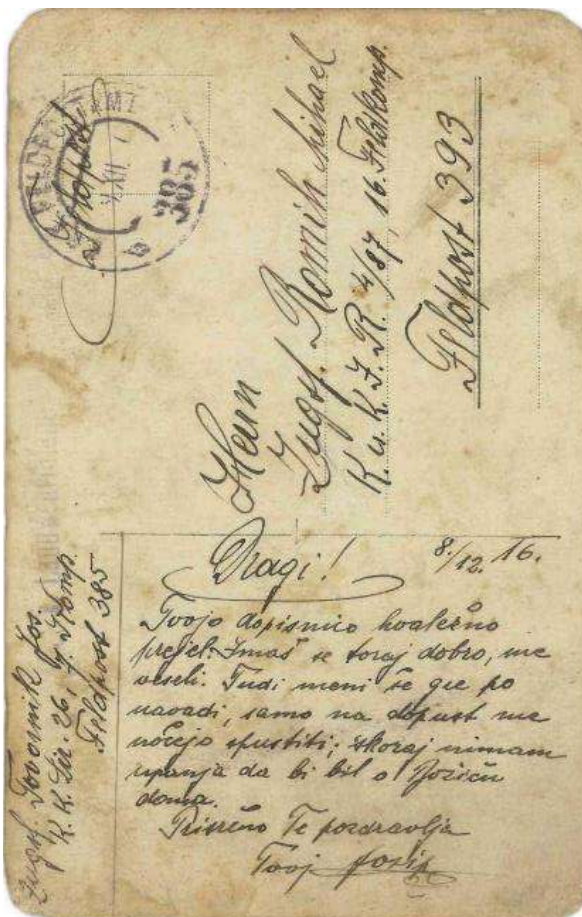 Feldpost
K.u.K. FELDPOSTAMT
385
b
Herrn
Zugsf. Romih Mihael
K. u. K. I. R. 4/87, 16. Feldkomp.
Feldpost 393
Zugsf. Jos.
K. K. Sir. 26, 7. Komp.
Feldpost 385
8./12. 16.
Dragi!
Tvojo dopisnico hvaležno
prejel. Imaš se toraj dobro, me
veseli. Tudi meni se gre po
navadi, samo na dopust me
nočejo spustiti; skoraj nimam
upanja da bi bil o Božiču
doma.
Prisrčno Te pozdravlja
Tvoj Josip